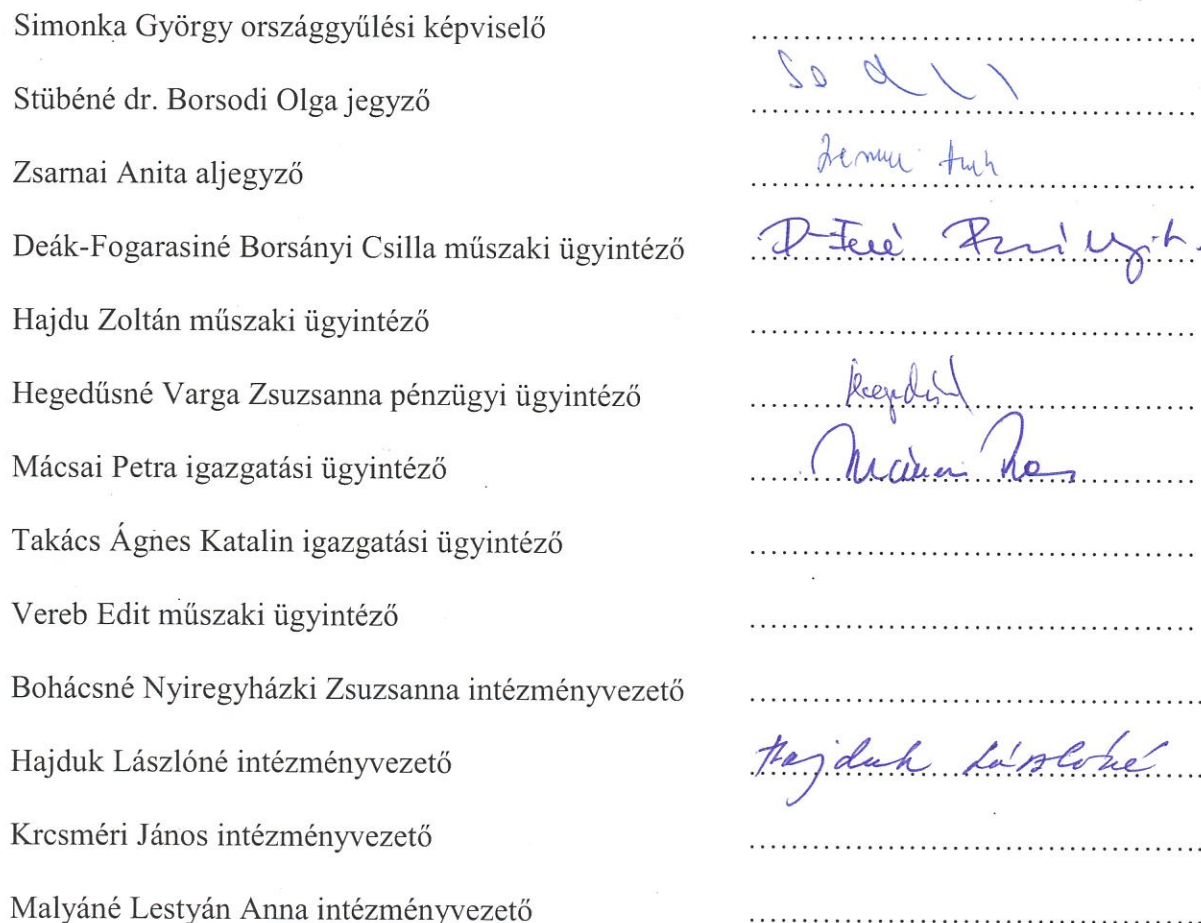 Simonka György országgyűlési képviselő ........................................
Stübéné dr. Borsodi Olga jegyző ........................................
Zsarnai Anita aljegyző ........................................
Deák-Fogarasiné Borsányi Csilla műszaki ügyintéző ........................................
Hajdu Zoltán műszaki ügyintéző ........................................
Hegedűsné Varga Zsuzsanna pénzügyi ügyintéző ........................................
Mácsai Petra igazgatási ügyintéző ........................................
Takács Ágnes Katalin igazgatási ügyintéző ........................................
Vereb Edit műszaki ügyintéző ........................................
Bohácsné Nyiregyházki Zsuzsanna intézményvezető ........................................
Hajduk Lászlóné intézményvezető Hajduk Lászlóné
Krcsméri János intézményvezető ........................................
Malyáné Lestyán Anna intézményvezető ........................................